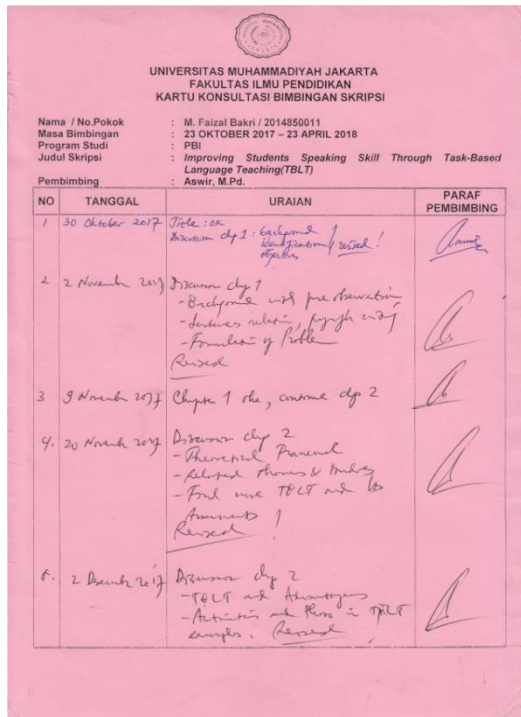 UNIVERSITAS MUHAMMADIYAH JAKARTA
FAKULTAS ILMU PENDIDIKAN
KARTU KONSULTASI BIMBINGAN SKRIPSI
Nama / No.Pokok : M. Faizal Bakri / 2014850011
Masa Bimbingan : 23 OKTOBER 2017 – 23 APRIL 2018
Program Studi : PBI
Judul Skripsi : Improving Students Speaking Skill Through Task-Based
Language Teaching(TBLT)
Pembimbing : Aswir, M.Pd.
NO TANGGAL URAIAN PARAF
PEMBIMBING
1 30 Oktober 2017 Title : OK
Discussion chp 1 : background
identification revised !
objectives
2 2 November 2017 Discussion chp 1
- Background and pre observation
- Sentences relation,
- Formulation of Problem
Revised
3 9 November 2017 Chapter 1 oke, continue chp 2
4. 20 November 2017 Discussion chp 2
- Theoretical Framework
- Related theories & studies
- Find more TBLT and its
Revised !
5. 2 Desember 2017 Discussion chp 2
- TBLT and Advantages
- Activities and in TBLT
examples. Revised !